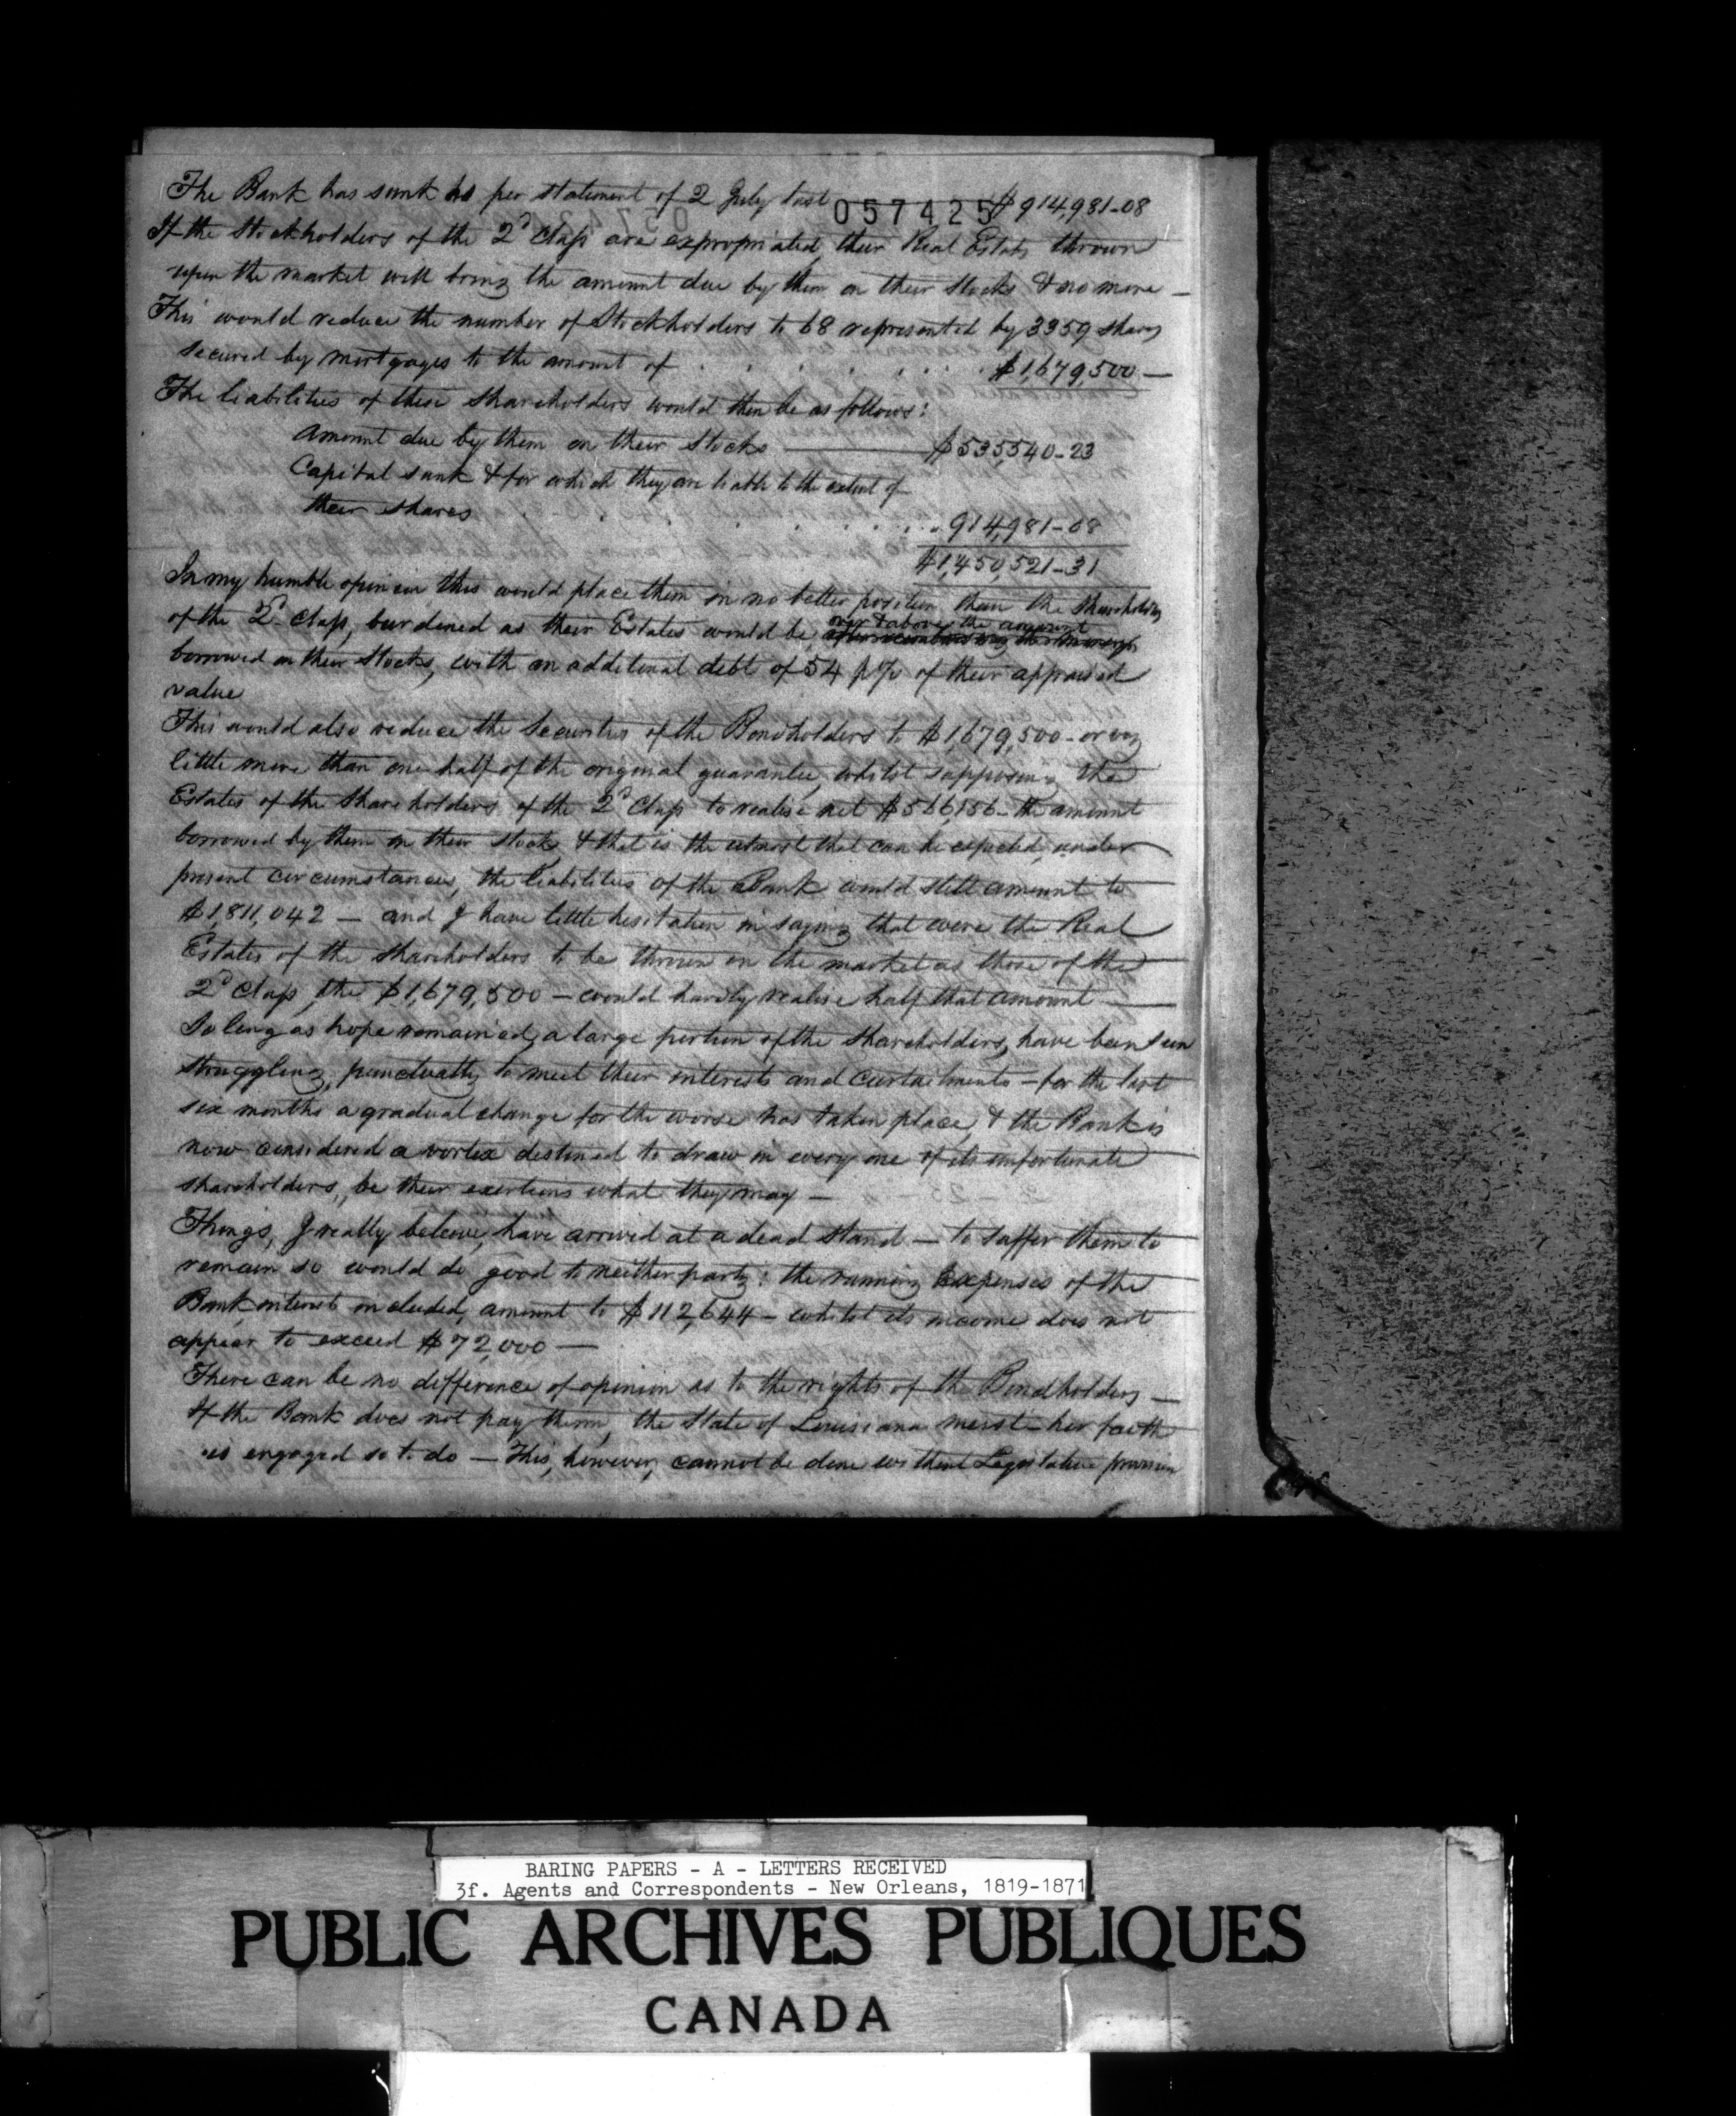 The Bank has sunk as per statement of 2 July last 057425 $914,981-08
If the Stockholders of the 2d Class are expropriated, their Real Estate thrown
upon the market will bring the amount due by them on their Stocks & no more —
This would reduce the number of Stockholders to 68 represented by 3359 shares
secured by mortgages to the amount of . . . . . . . $1,679,500 —
The liabilities of these Shareholders would then be as follows:
Amount due by them on their Stocks — $535,540-23
Capital sunk & for which they are liable to the extent of
their shares . . . . . . . . 914,981-08
$1,450,521-31
In my humble opinion this would place them in no better position than the Shareholders
over & above the amount
of the 2d Class, burdened as their Estates would be,
borrowed on their Stocks, with an additional debt of 54 p% of their appraised
value
This would also reduce the Securities of the Bondholders to $1,679,500 - or very
little more than one half of the original guarantee, whilst supposing the
Estates of the Shareholders of the 2d Class to realise net $566,156 - the amount
borrowed by them on their Stock, & that is the utmost that can be expected, under
present circumstances, the liabilities of the Bank would still amount to
$1,811,042 — and I have little hesitation in saying that were the Real
Estates of the Shareholders to be thrown on the market as those of the
2d Class, the $1,679,500 — would hardly realise half that amount —
So long as hope remained, a large portion of the Shareholders, have been seen
struggling, punctually to meet their interests and curtailments — for the last
six months a gradual change for the worse has taken place, & the Bank is
now considered a vortex destined to draw in every one of its unfortunate
shareholders, be their exertions what they may —
Things, I really beleive, have arrived at a dead stand — to suffer them to
remain so would do good to neither party: the running expenses of the
Bank, interest included, amount to $112,644 — whilst its income does not
appear to exceed $72,000 —
There can be no difference of opinion as to the rights of the Bondholders —
If the Bank does not pay them, the State of Louisiana must — her faith
is engaged so to do — This, however, cannot be done without Legislative provision
BARING PAPERS - A - LETTERS RECEIVED
3f. Agents and Correspondents - New Orleans, 1819-1871
PUBLIC ARCHIVES PUBLIQUES
CANADA